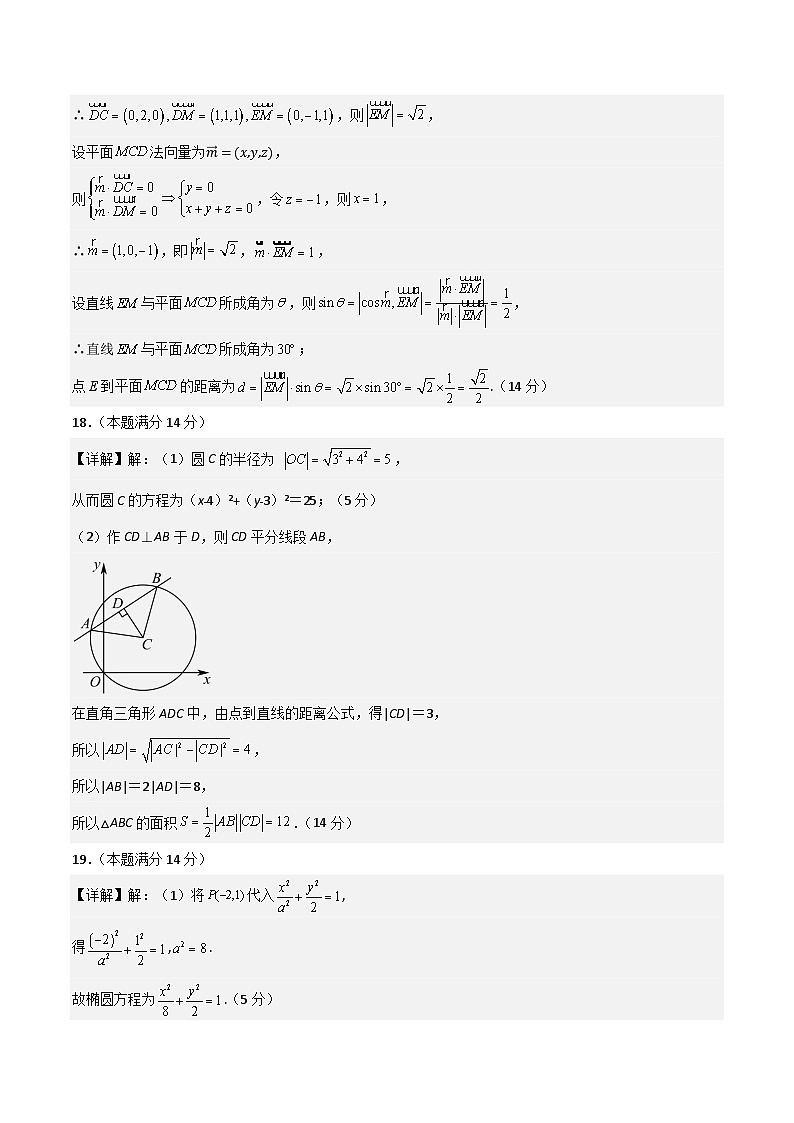 ∴DC=(0,2,0),DM=(1,1,1),EM=(0,-1,1),则|EM|=√2,
设平面MCD法向量为m⃗=(x,y,z),
则{m·DC=0 m·DM=0⇒{y=0 x+y+z=0,令z=-1,则x=1,
∴m=(1,0,-1),即|m|=√2,m·EM=1,
设直线EM与平面MCD所成角为θ,则sinθ=|cosm,EM|=|m·EM|/|m|·|EM|=1/2,
∴直线EM与平面MCD所成角为30°;
点E到平面MCD的距离为d=|EM|·sinθ=√2×sin30°=√2×1/2=√2/2.(14分)
18.(本题满分14分)
【详解】解:(1)圆C的半径为 |OC|=√(3²+4²)=5,
从而圆C的方程为(x-4)²+(y-3)²=25;(5分)
(2)作CD⊥AB于D,则CD平分线段AB,
y
B
D
A
C
O
x
在直角三角形ADC中,由点到直线的距离公式,得|CD|=3,
所以|AD|=√(|AC|²-|CD|²)=4,
所以|AB|=2|AD|=8,
所以△ABC的面积S=1/2|AB||CD|=12.(14分)
19.(本题满分14分)
【详解】解:(1)将P(-2,1)代入x²/a²+y²/2=1,
得(-2)²/a²+1²/2=1,a²=8.
故椭圆方程为x²/8+y²/2=1.(5分)